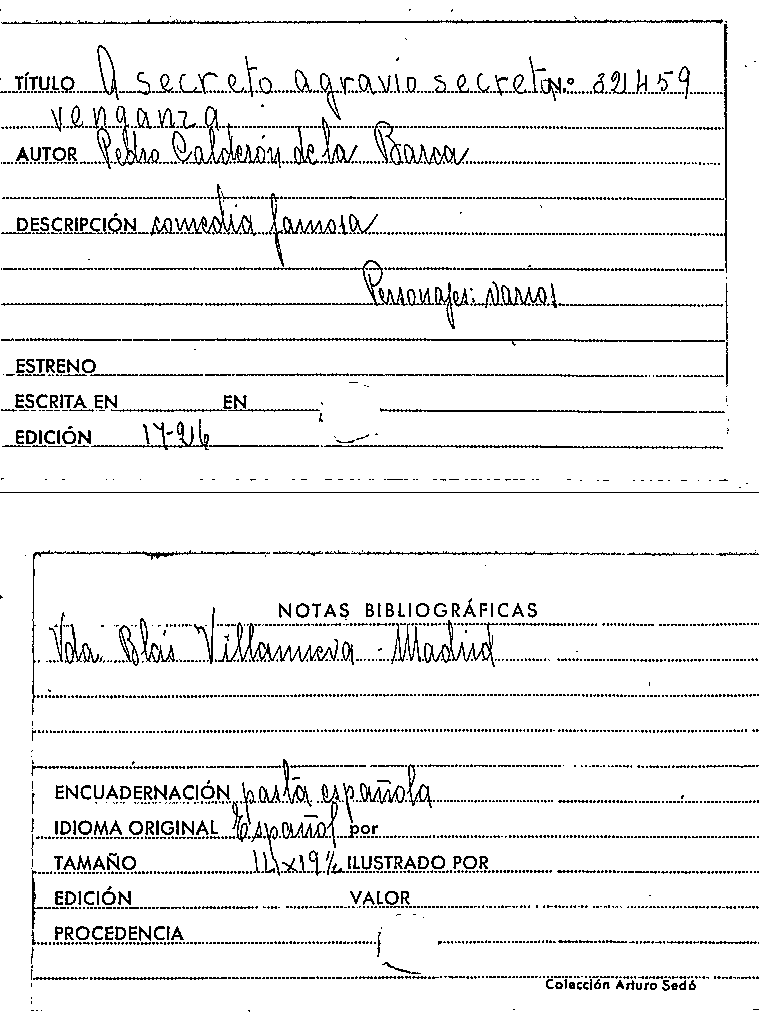 TÍTULO A secreto agravio secreta N.º
venganza
AUTOR Pedro Calderón de la Barca
DESCRIPCIÓN comedia famosa
Personajes: varios
ESTRENO
ESCRITA EN EN
EDICIÓN
NOTAS BIBLIOGRÁFICAS
Vda. Blas Villanueva - Madrid
ENCUADERNACIÓN pasta española
IDIOMA ORIGINAL Español por
TAMAÑO ILUSTRADO POR
EDICIÓN VALOR
PROCEDENCIA
Colección Arturo Sedó